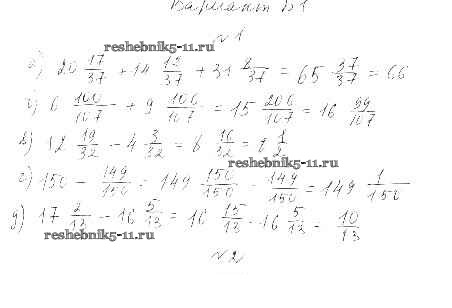 Вариант №1
№1
reshebnik5-11.ru
а) 20 17/37 + 14 /37 + 31 /37 = 65 37/37 = 66
100/107 + 9 100/107 = 15 200/107 = 16 93/107
в) 12 19/32 - 4 3/32 = 8 16/32 = 1/2
reshebnik5-11.ru
150 - 149/150 = 149 150/150 - 149/150 = 149 1/150
д) 17 2/13 - 16 5/13 = 16 15/13 - 16 5/13 = 10/13
reshebnik5-11.ru
№2